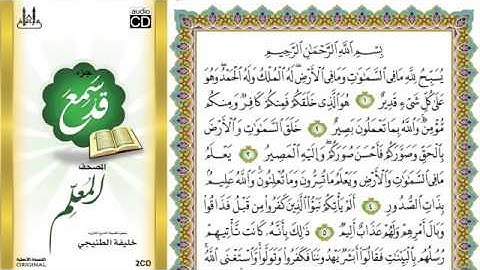 audio
CD
جزء
قد سمع
المصحف
المعلم
خليفة الطنيجي
النسخة الأصلية
ORIGINAL
2CD
بِسْمِ اللَّهِ الرَّحْمَٰنِ الرَّحِيمِ
يُسَبِّحُ لِلَّهِ مَا فِي السَّمَٰوَٰتِ وَمَا فِي الْأَرْضِ ۖ لَهُ الْمُلْكُ وَلَهُ الْحَمْدُ ۖ وَهُوَ
عَلَىٰ كُلِّ شَيْءٍ قَدِيرٌ ١ هُوَ الَّذِي خَلَقَكُمْ فَمِنكُمْ كَافِرٌ وَمِنكُم
مُّؤْمِنٌ ۚ وَاللَّهُ بِمَا تَعْمَلُونَ بَصِيرٌ ٢ خَلَقَ السَّمَٰوَٰتِ وَالْأَرْضَ
بِالْحَقِّ وَصَوَّرَكُمْ فَأَحْسَنَ صُوَرَكُمْ ۖ وَإِلَيْهِ الْمَصِيرُ ٣ يَعْلَمُ
مَا فِي السَّمَٰوَٰتِ وَالْأَرْضِ وَيَعْلَمُ مَا تُسِرُّونَ وَمَا تُعْلِنُونَ ۚ وَاللَّهُ عَلِيمٌ
بِذَاتِ الصُّدُورِ ٤ أَلَمْ يَأْتِكُمْ نَبَؤُا الَّذِينَ كَفَرُوا مِن قَبْلُ فَذَاقُوا
وَبَالَ أَمْرِهِمْ وَلَهُمْ عَذَابٌ أَلِيمٌ ٥ ذَٰلِكَ بِأَنَّهُ كَانَت تَّأْتِيهِمْ
رُسُلُهُم بِالْبَيِّنَٰتِ فَقَالُوا أَبَشَرٌ يَهْدُونَنَا فَكَفَرُوا وَتَوَلَّوا ۚ وَّاسْتَغْنَى اللَّهُ